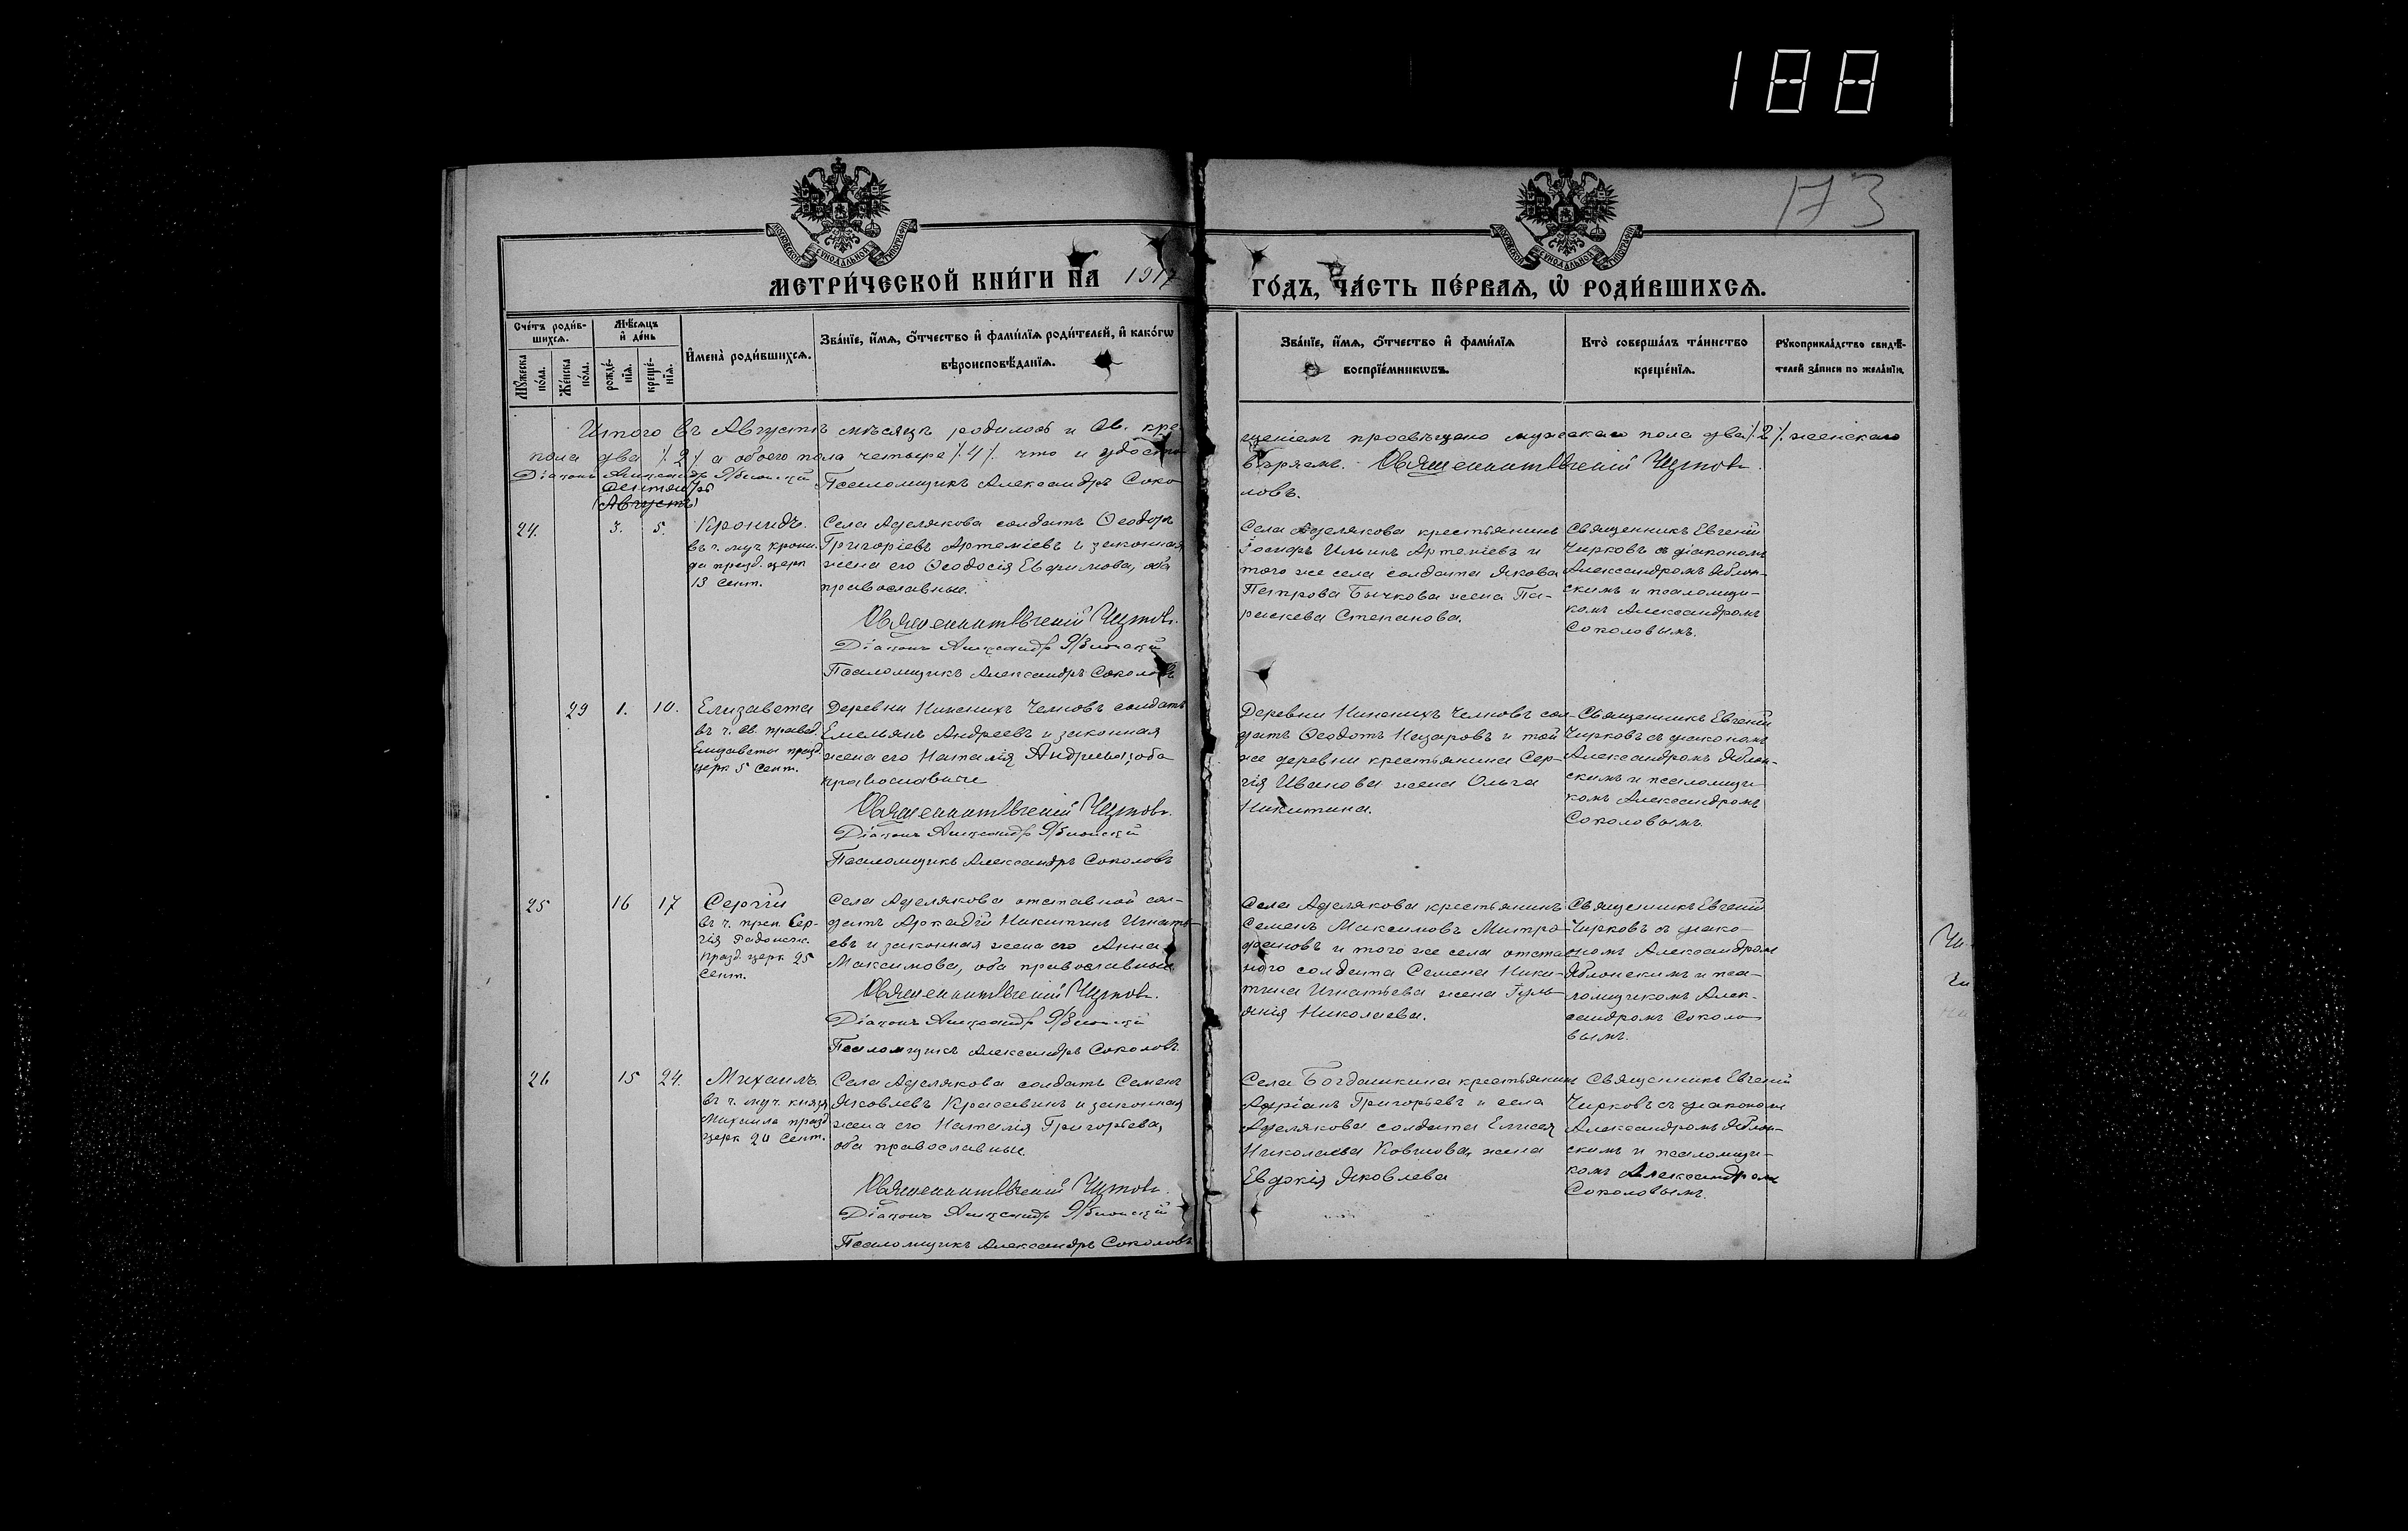 188
173
МОСКОВСКОЙ СѴНОДАЛЬНОЙ ТИПОГРАФІИ
МОСКОВСКОЙ СѴНОДАЛЬНОЙ ТИПОГРАФІИ
МЕТРИ́ЧЕСКОЙ КНИ́ГИ НА 1917
ГО́ДЪ, ЧА́СТЬ ПЕ́РВАЯ, Ѡ РОДИ́ВШИХСЯ.
Сче́тъ роди́в-
шихся.
Мѣ́сяцъ
и де́нь
Му́жеска по́ла.
Же́нска по́ла.
рожде́-нїя.
креще́-нїя.
Имена̀ роди́вшихся.
Зва́нїе, и́мя, о́тчество и фами́лїя роди́телей, и како́гѡ
вѣроисповѣ́данїя.
Зва́нїе, и́мя, о́тчество и фами́лїя
воспрїе́мникѡвъ.
Кто̀ соверша́лъ та́инство
креще́нїя.
Рукоприкла́дство свидѣ́-
телей за́писи по жела́нїю.
Итого въ Августѣ мѣсяцѣ родилось и Св. кре
щеніемъ просвѣщено мужескаго пола два /2/ женскаго
пола два /2/ а обоего пола четыре /4/ что и удосто
вѣряемъ. Священникъ Евгеній Чирковъ.
Діаконъ Александръ Яблонскій Псаломщикъ Александръ Соко
ловъ.
Сентябрь
Августъ
24. 3. 5. Кронидъ.
въ ч. муч. Крони-
да празд. церк
13 сент.
Села Аделякова солдатъ Ѳеодоръ
Григоріевъ Артеміевъ и законная
жена его Ѳеодосія Евфимова, оба
православные.
Священникъ Евгеній Чирковъ.
Діаконъ Александръ Яблонскій
Псаломщикъ Александръ Соколовъ
Села Аделякова крестьянинъ
Іосифъ Ильинъ Артеміевъ и
того же села солдата Якова
Петрова Бычкова жена Па-
раскева Степанова.
Священникъ Евгеній
Чирковъ съ діакономъ
Александромъ Яблон-
скимъ и псаломщи-
комъ Александромъ
Соколовымъ.
29 1. 10. Елизавета
въ ч. св. правед.
Елизаветы празд.
церк 5 Сент.
Деревни Нижнихъ Челновъ солдатъ
Емельянъ Андреевъ и законная
жена его Наталія Андреева, оба
православные
Священникъ Евгеній Чирковъ.
Діаконъ Александръ Яблонскій
Псаломщикъ Александръ Соколовъ
Деревни Нижнихъ Челновъ сол-
датъ Ѳеодотъ Назаровъ и той
же деревни крестьянина Сер-
гія Иванова жена Ольга
Никитина.
Священникъ Евгеній
Чирковъ съ діакономъ
Александромъ Яблон-
скимъ и псаломщи-
комъ Александромъ
Соколовымъ.
25 16 17 Сергій
въ ч. преп. Сер-
гія Радонеж.
празд. церк 25
Сент.
Села Аделякова отставной сол-
датъ Аркадій Никитинъ Игнать-
евъ и законная жена его Анна
Максимова, оба православные
Священникъ Евгеній Чирковъ.
Діаконъ Александръ Яблонскій
Псаломщикъ Александръ Соколовъ.
Села Аделякова крестьянинъ
Семенъ Максимовъ Митро-
фановъ и того же села отстав-
ного солдата Семена Ники-
тина Игнатьева жена
Николаева.
Священникъ Евгеній
Чирковъ съ діако-
номъ Александромъ
Яблонскимъ и пса-
ломщикомъ Алек-
сандромъ Соколо
вымъ.
26 15 24. Михаилъ.
въ ч. муч. князя
Михаила празд.
церк 20 Сент.
Села Аделякова солдатъ Семенъ
Яковлевъ Красавинъ и законная
жена его Наталія Григорьева,
оба православные.
Священникъ Евгеній Чирковъ.
Діаконъ Александръ Яблонскій
Псаломщикъ Александръ Соколовъ.
Села Богдашкина крестьянинъ
Адріанъ Григорьевъ и села
Аделякова солдата Елисея
Николаева жена
Евдокія Яковлева
Священникъ Евгеній
Чирковъ съ діакономъ
Александромъ Яблон-
скимъ и псаломщи-
комъ Александромъ
Соколовымъ.